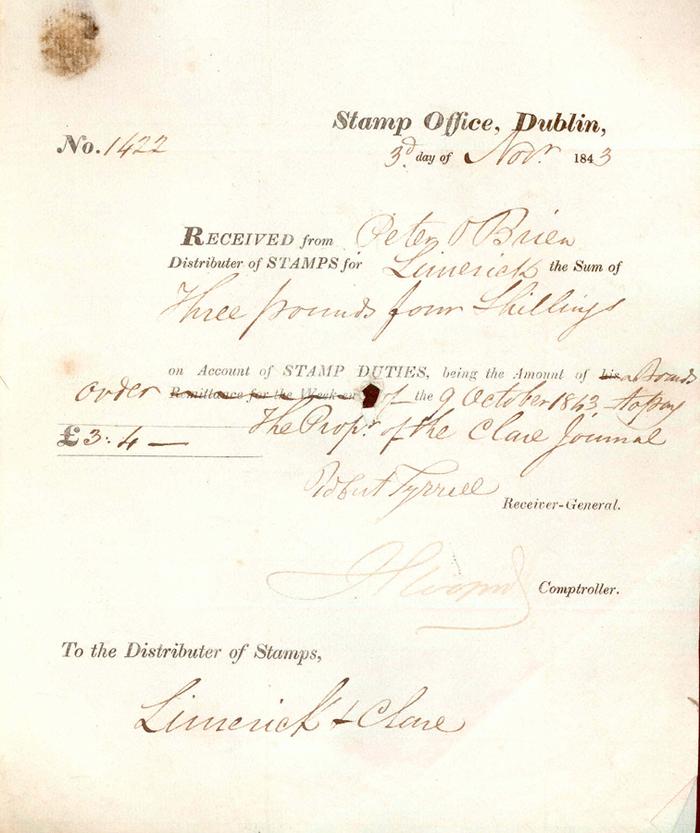 Stamp Office, Dublin,
No. 1422
3d day of Novr 1843
RECEIVED from Peter O Brien
Distributer of STAMPS for Limerick the Sum of
Three pounds four Shillings
on Account of STAMP DUTIES, being the Amount of his a Boards
order Remittance for the Week en of the 9 October 1843 to pay
£3:4—
The Propr. of the Clare Journal
Robert Tyrrell
Receiver-General.
Comptroller.
To the Distributer of Stamps,
Limerick & Clare